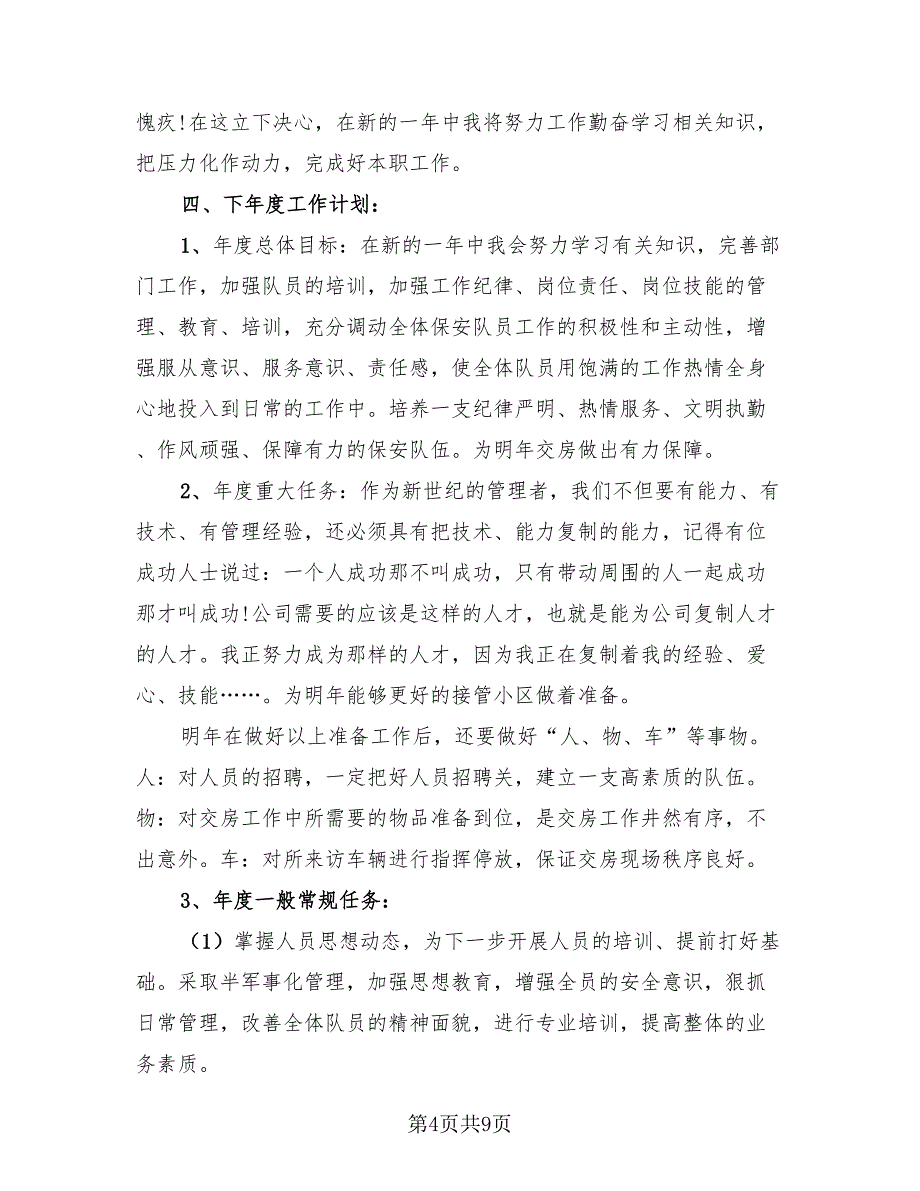 愧疚!在这立下决心，在新的一年中我将努力工作勤奋学习相关知识，
把压力化作动力，完成好本职工作。
四、下年度工作计划：
1、年度总体目标：在新的一年中我会努力学习有关知识，完善部
门工作，加强队员的培训，加强工作纪律、岗位责任、岗位技能的管
理、教育、培训，充分调动全体保安队员工作的积极性和主动性，增
强服从意识、服务意识、责任感，使全体队员用饱满的工作热情全身
心地投入到日常的工作中。培养一支纪律严明、热情服务、文明执勤
、作风顽强、保障有力的保安队伍。为明年交房做出有力保障。
2、年度重大任务：作为新世纪的管理者，我们不但要有能力、有
技术、有管理经验，还必须具有把技术、能力复制的能力，记得有位
成功人士说过：一个人成功那不叫成功，只有带动周围的人一起成功
那才叫成功!公司需要的应该是这样的人才，也就是能为公司复制人才
的人才。我正努力成为那样的人才，因为我正在复制着我的经验、爱
心、技能……。为明年能够更好的接管小区做着准备。
明年在做好以上准备工作后，还要做好“人、物、车”等事物。
人：对人员的招聘，一定把好人员招聘关，建立一支高素质的队伍。
物：对交房工作中所需要的物品准备到位，是交房工作井然有序，不
出意外。车：对所来访车辆进行指挥停放，保证交房现场秩序良好。
3、年度一般常规任务：
（1）掌握人员思想动态，为下一步开展人员的培训、提前打好基
础。采取半军事化管理，加强思想教育，增强全员的安全意识，狠抓
日常管理，改善全体队员的精神面貌，进行专业培训，提高整体的业
务素质。
第4页共9页